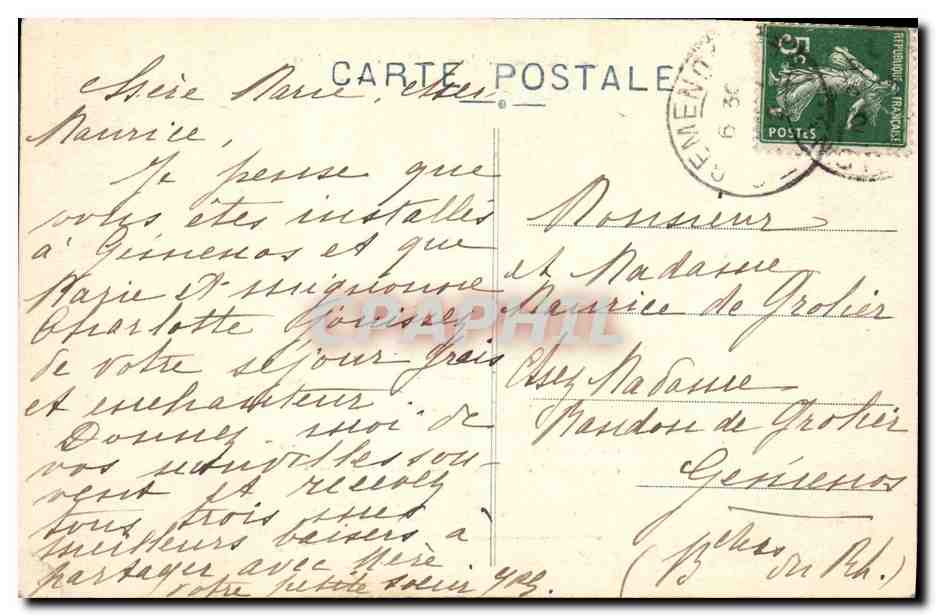 CARTE POSTALE
REPUBLIQUE FRANÇAISE
5c
POSTES
6 30
Chère Marie, cher
Maurice,
Je pense que
vous êtes installés
à Gémenos et que
Marie et mignonne
Charlotte jouissez
de votre séjour frais
et enchanteur.
Donnez-moi de
vos nouvelles sou-
vent et recevez
tous trois mes
meilleurs baisers à
partager avec Mère
votre petite soeur
Monsieur
et Madame
Maurice de Grolier
Chez Madame
Mandon de Grolier
Gémenos
(Bches du Rh.)
CPAPHIL